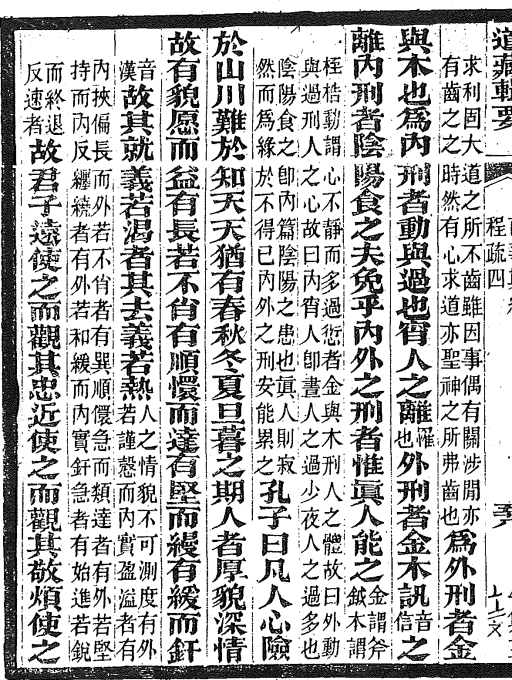 道藏輯要
程疏四
求利固大道之所不齒雖因事偶有關涉閒亦
有齒之之時然有心求道亦聖神之所弗齒也
為外刑者金
與木也為內刑者動與過也宵人之離罹也外刑者金木訊音信之
離內刑者陰陽食之夫免乎內外之刑者惟眞人能之金謂斧鉞木謂
桎梏動謂心不靜而多過愆者金與木刑人之體故曰外動
與過刑人之心故曰內宵人卽晝人之過少夜人之過多也
陰陽食之卽內篇陰陽之患也眞人則寂
然而為緣於不得已內外之刑安能累之
孔子曰凡人心險
於山川難於知天天猶有春秋冬夏旦暮之期人者厚貌深情
故有貌愿而益有長若不肖有順懁而達有堅而縵有緩而釬
音漢故其就義若渴者其去義若熱
人之情貌不可測度有外
若謹愨而內實盈溢者有
內挾偏長而外若不肖者有巽順儇急而類達者有外若堅
持而內反纏繞者有外若和緩而內實釬急者有始進若銳
而終退
反速者
故君子遠使之而觀其忠近使之而觀其敬煩使之